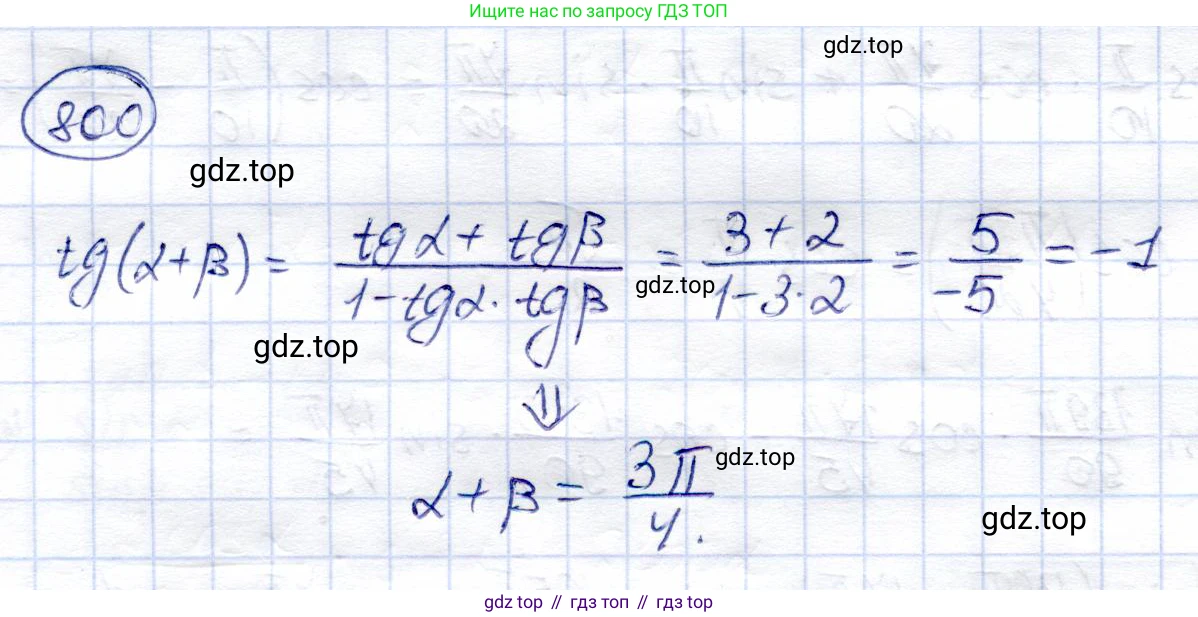 Ищите нас по запросу ГДЗ ТОП
gdz.top
800
gdz.top
tg(α+β) = (tgα + tgβ)/(1-tgα·tgβ) = (3+2)/(1-3·2) = 5/-5 = -1
gdz.top
gdz.top
⇓
α+β = 3π/4.
gdz.top
gdz.top
gdz top // гдз топ // gdz top